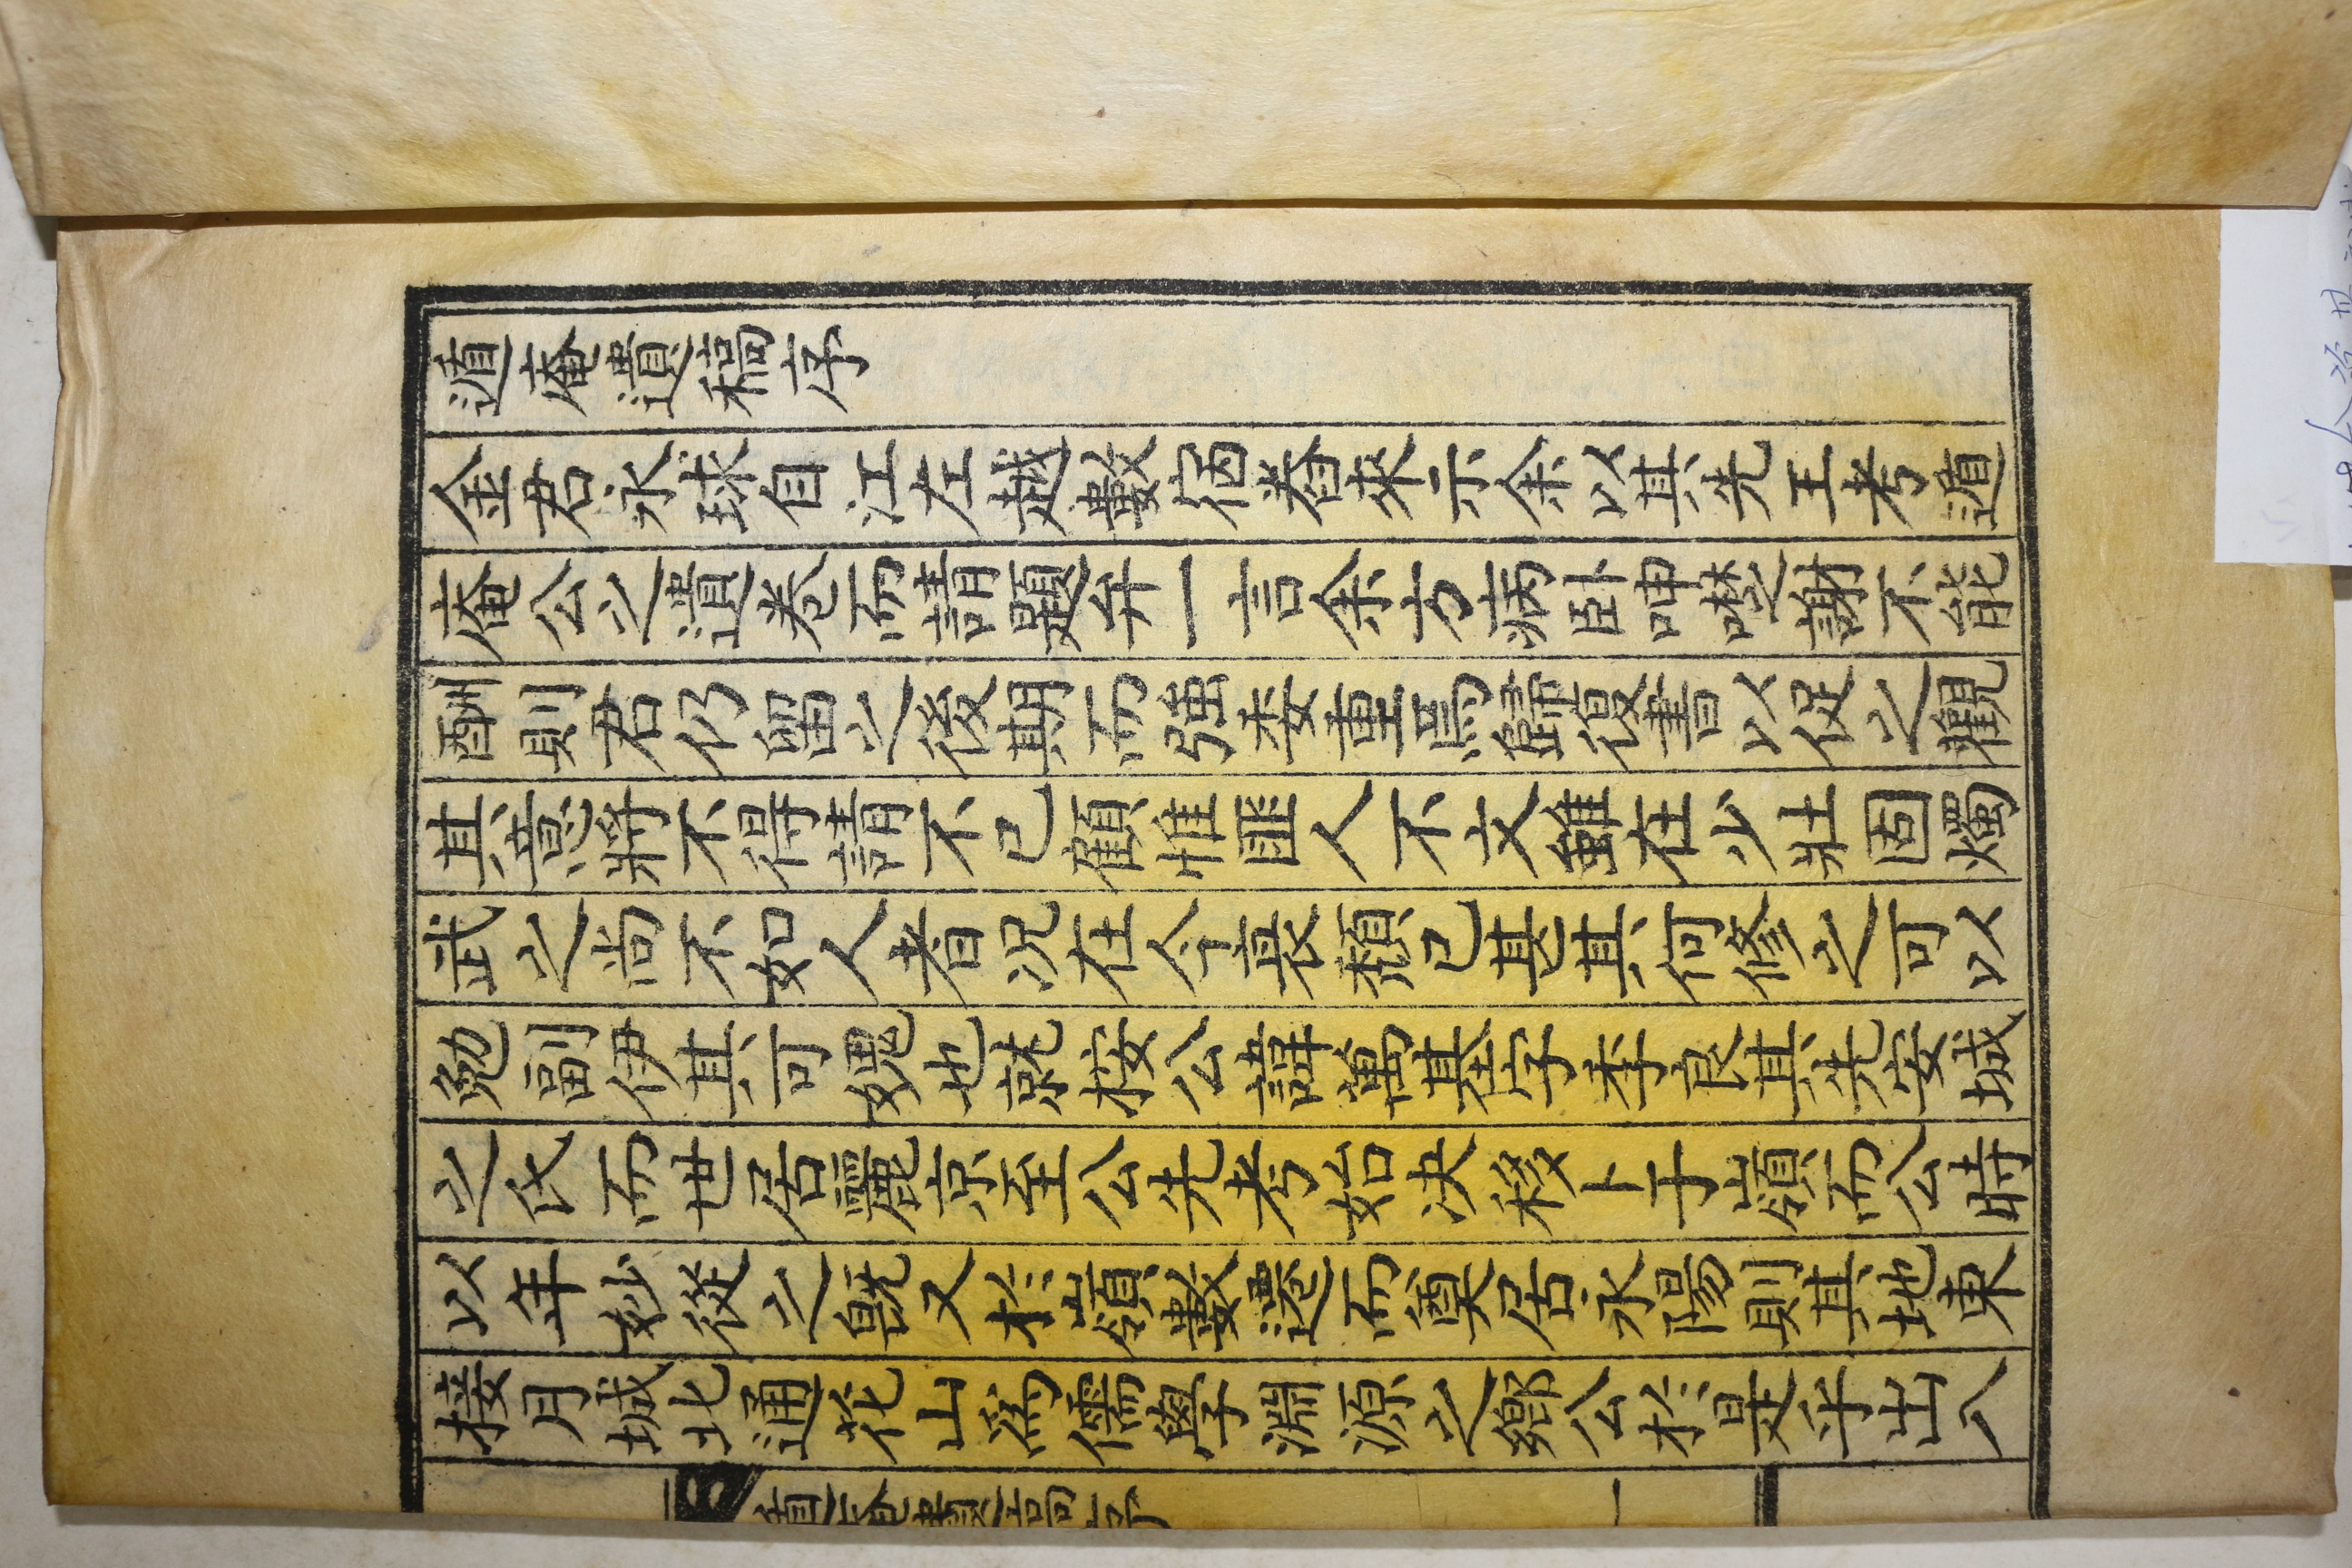 遁庵遺稿序
金君永球自江左越數宿舂來示余以其先王考遁
庵公之遺卷而請題弁一言余方病卧呻囈之謝不能
酬則君仍留之後期而強委重焉歸復書以促之觀
其意將不得請不已顧惟匪人不文雖在少壯固燭
武之尚不如人者況在今衰頹已甚其何修之可以
勉副伊其可媿也就按公諱萬基字季良其先安城
之氏而世居麗京至公先考始決移卜于嶺而公時
以年妙從之既又於嶺數遷而奠居永陽則其地東
接月城北通花山為儒學淵源之鄉公於是乎出入
遁庵遺稿序 一